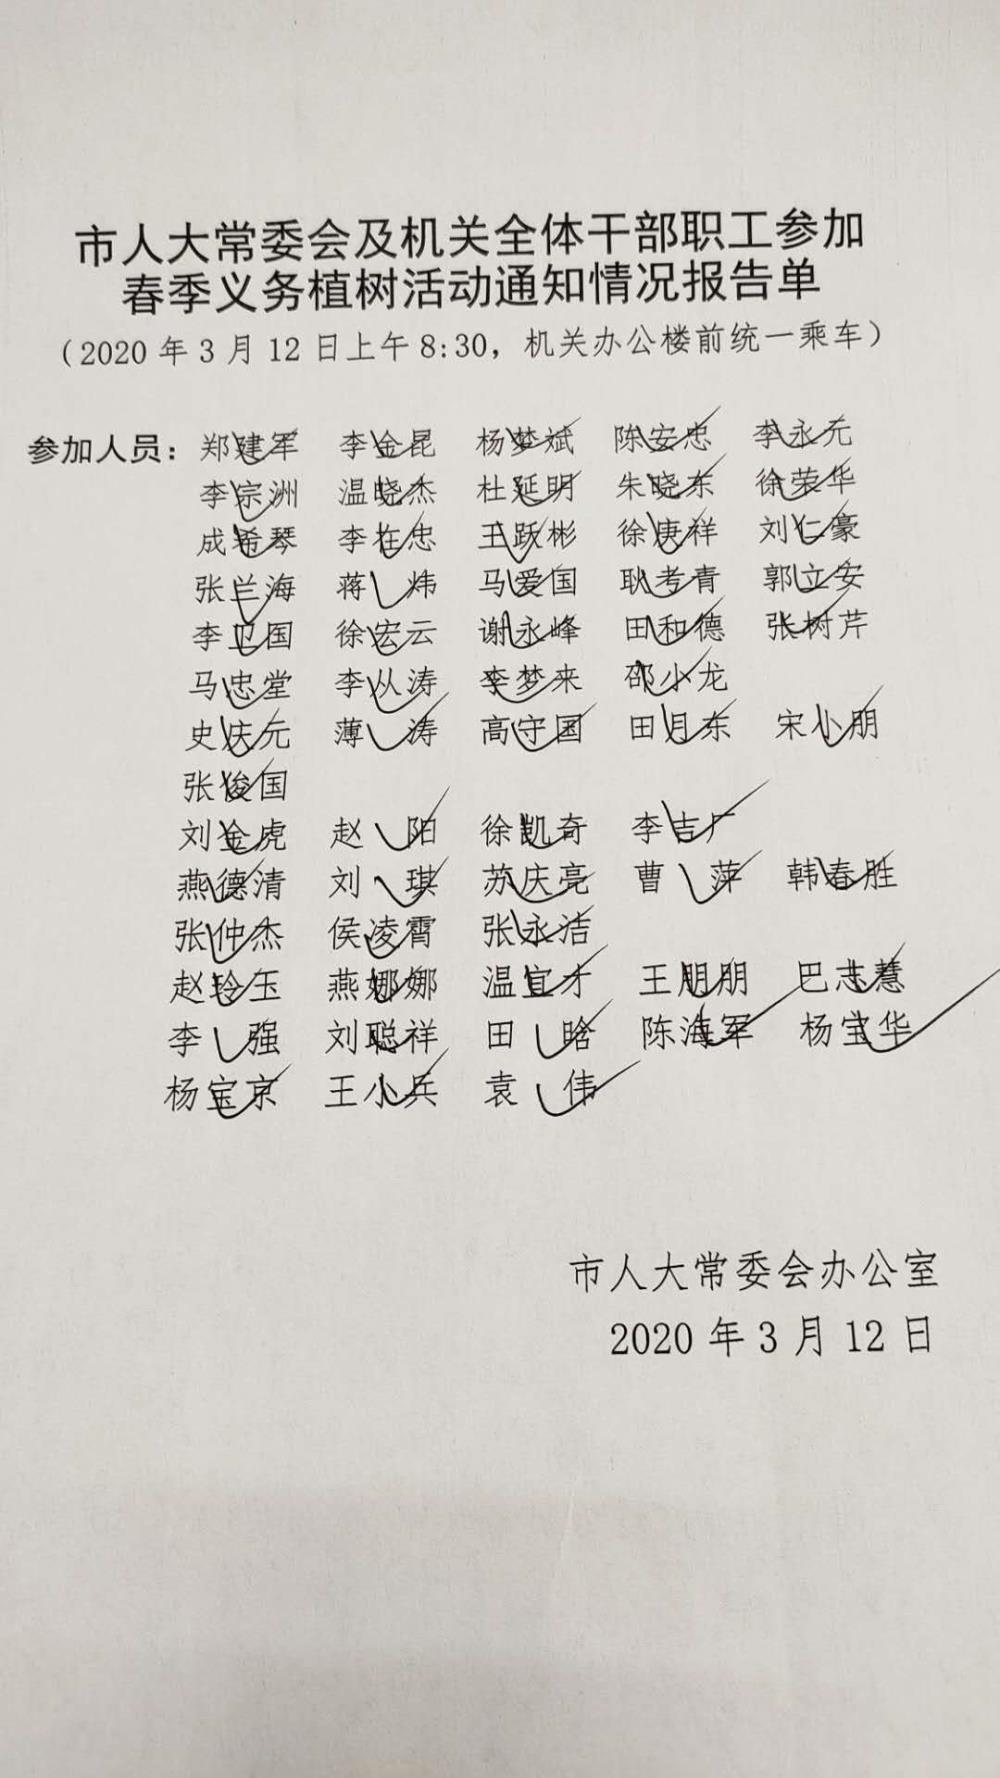 市人大常委会及机关全体干部职工参加
春季义务植树活动通知情况报告单
（2020 年 3 月 12 日上午 8:30，机关办公楼前统一乘车）
参加人员：郑建军 李金昆 杨梦斌 陈安忠 李永元
李宗洲 温晓杰 杜延明 朱晓东 徐荣华
成希琴 李在忠 王跃彬 徐庚祥 刘仁豪
张兰海 蒋 炜 马爱国 耿考青 郭立安
李卫国 徐宏云 谢永峰 田和德 张树芹
马忠堂 李从涛 李梦来 邵小龙
史庆元 薄 涛 高守国 田月东 宋小朋
张俊国
刘金虎 赵 阳 徐凯奇 李吉广
燕德清 刘 琪 苏庆亮 曹 萍 韩春胜
张仲杰 侯凌霄 张永洁
赵玲玉 燕娜娜 温宜才 王朋朋 巴志慧
李 强 刘聪祥 田 晗 陈海军 杨宝华
杨宝京 王小兵 袁 伟
市人大常委会办公室
2020 年 3 月 12 日